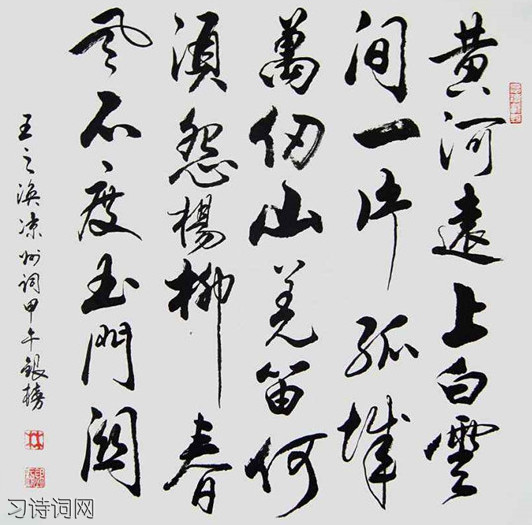 黄河遠上白雲
間一片孤城
萬仞山羌笛何
須怨楊柳春
風不度玉門關
王之渙凉州詞甲午銀榜
习诗词网